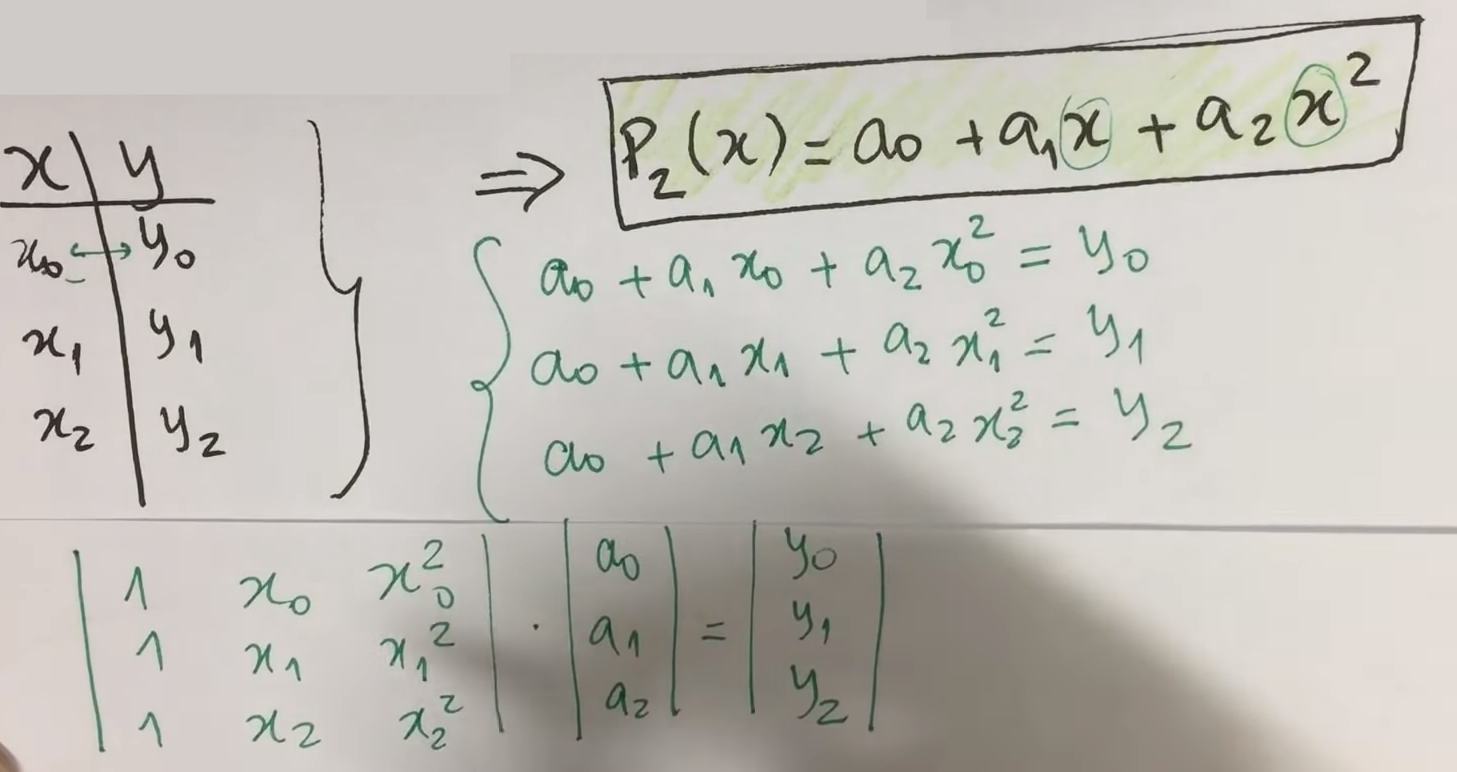 x | y
x₀ ↔ y₀
x₁ | y₁
x₂ | y₂
⇒ P₂(x) = a₀ + a₁x + a₂x²
a₀ + a₁ x₀ + a₂ x₀² = y₀
a₀ + a₁ x₁ + a₂ x₁² = y₁
a₀ + a₁ x₂ + a₂ x₂² = y₂
| 1 x₀ x₀² | | a₀ | | y₀ |
| 1 x₁ x₁² | · | a₁ | = | y₁ |
| 1 x₂ x₂² | | a₂ | | y₂ |